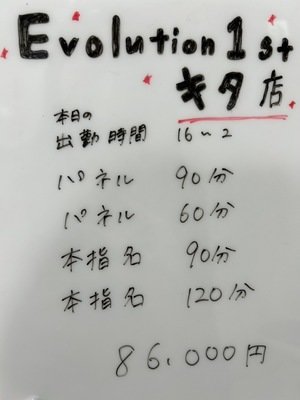 Evolution 1st
キタ店
本日の
出勤時間 16〜2
パネル 90分
パネル 60分
本指名 90分
本指名 120分
86,000円